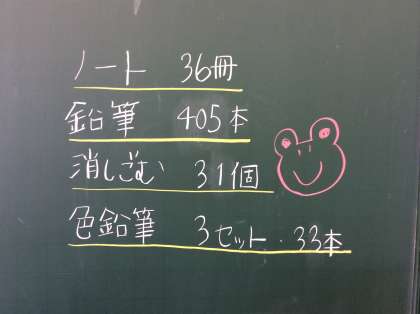 ノート 36冊
鉛筆 405本
消しごむ 31個
色鉛筆 3セット・33本